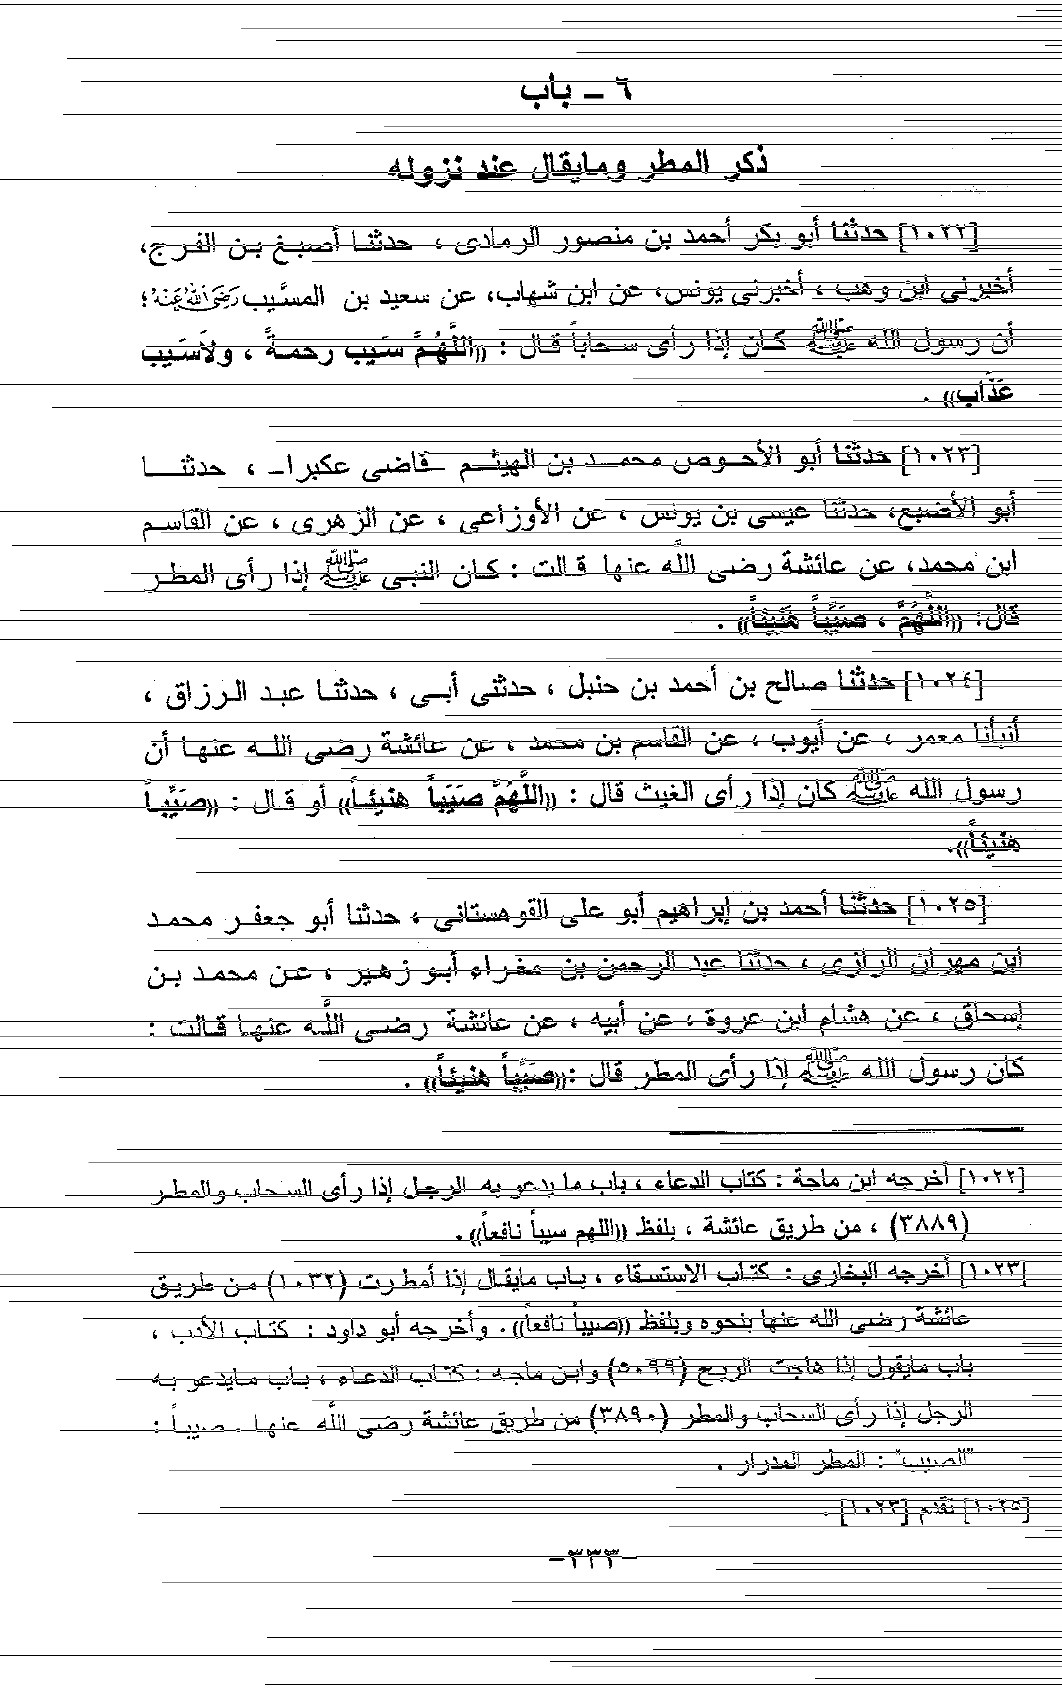 ٦ ــ باب
ذكر المطر ومايقال عند نزوله
[١٠٢٢] حدثنا أبو بكر أحمد بن منصور الرمادى ، حدثنا أصبغ بن الفرج،
أخبرنى ابن وهب ، أخبرنى يونس، عن ابن شهاب، عن سعيد بن المسَّيب رَضِىَ اللهُ عَنْهُ؛
أن رسول الله ﷺ كان إذا رأى سحاباً قال : ((اللَّهُمَّ سَيب رحمةً ، ولاَسَيب
عَذَاب)) .
[١٠٢٣] حدثنا أبو الأحوص محمد بن الهيثم قاضى عكبرا- ، حدثنا
أبو الأضبع، حدثنا عيسى بن يونس ، عن الأوزاعى ، عن الزهرى ، عن القاسم
ابن محمد، عن عائشة رضى اللَّه عنها قالت : كان النبى ﷺ إذا رأى المطر
قال: ((اللَّهُمَّ ، صَيَّباً هَنَيئاً)) .
[١٠٢٤] حدثنا صالح بن أحمد بن حنبل ، حدثنى أبى ، حدثنا عبد الرزاق ،
أنبأنا معمر ، عن أيوب ، عن القاسم بن محمد ، عن عائشة رضى الله عنها أن
رسول الله ﷺ كان إذا رأى الغيث قال : ((اللَّهُمَّ صَيَباً هنيئاً)) أو قال : ((صَيَّباً
هنيئاً)).
[١٠٢٥] حدثنا أحمد بن إبراهيم أبو على القوهستانى ، حدثنا أبو جعفر محمد
ابن مهران الرازى ، حدثنا عبد الرحمن بن مغراء أبو زهير ، عن محمد بن
إسحاق ، عن هشام ابن عروة ، عن أبيه ، عن عائشة رضى اللَّه عنها قالت :
كان رسول الله ﷺ إذا رأى المطر قال :((صَيَّباً هنيئاً)) .
[١٠٢٢] أخرجه ابن ماجة : كتاب الدعاء ، باب ما يدعو به الرجل إذا رأى السحاب والمطر
(٣٨٨٩) ، من طريق عائشة ، بلفظ ((اللهم سيباً نافعاً)) .
[١٠٢٣] أخرجه البخارى : كتاب الاستسقاء ، باب مايقال إذا أمطرت (١٠٣٢) من طريق
عائشة رضى الله عنها بنحوه وبلفظ ((صيباً نافعاً)) . وأخرجه أبو داود : كتاب الأدب ،
باب مايقول إذا هاجت الريح (٥٠٩٩) وابن ماجه : كتاب الدعاء ، باب مايدعو به
الرجل إذا رأى السحاب والمطر (٣٨٩٠) من طريق عائشة رضى اللَّه عنها . صيباً :
"الصيب" : المطر المدرار .
[١٠٢٥] تقدم [١٠٢٣] .
-٣٣٣-